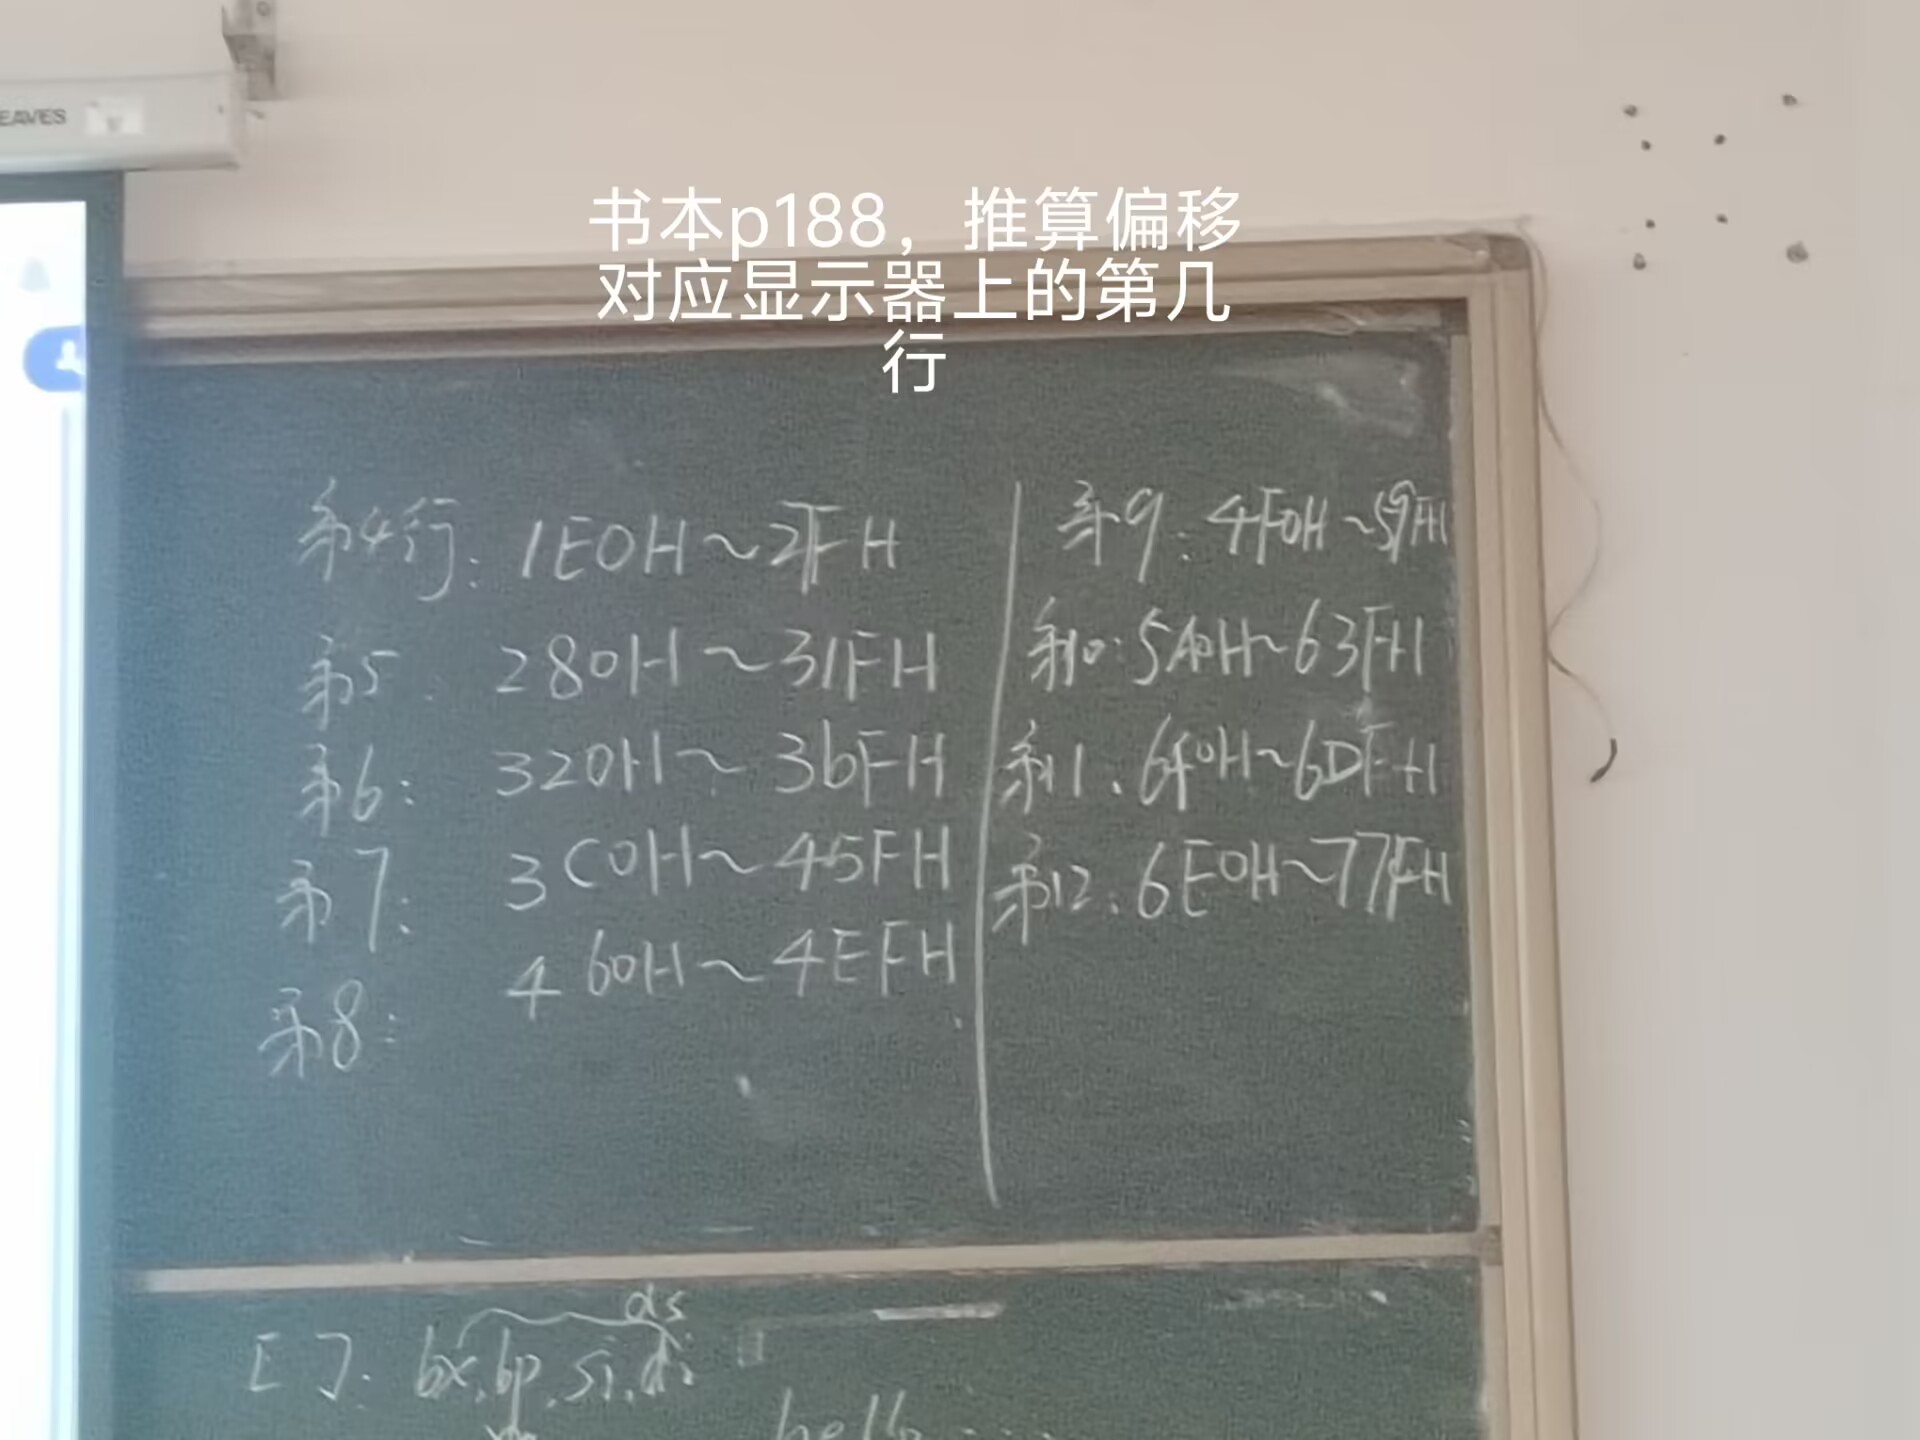 EAVES
书本p188，推算偏移
对应显示器上的第几
行
第4行: 1E0H～2FFH
第5. 280H～31FH
第6: 320H～3bFH
第7: 3C0H～45FH
第8: 460H～4EFH
第9: 4F0H～59FH
第10: 5A0H～63FH
第11. 6F0H～6DFH
第12. 6E0H～77FH
ds
[ ]: bx,bp,si,di
hello